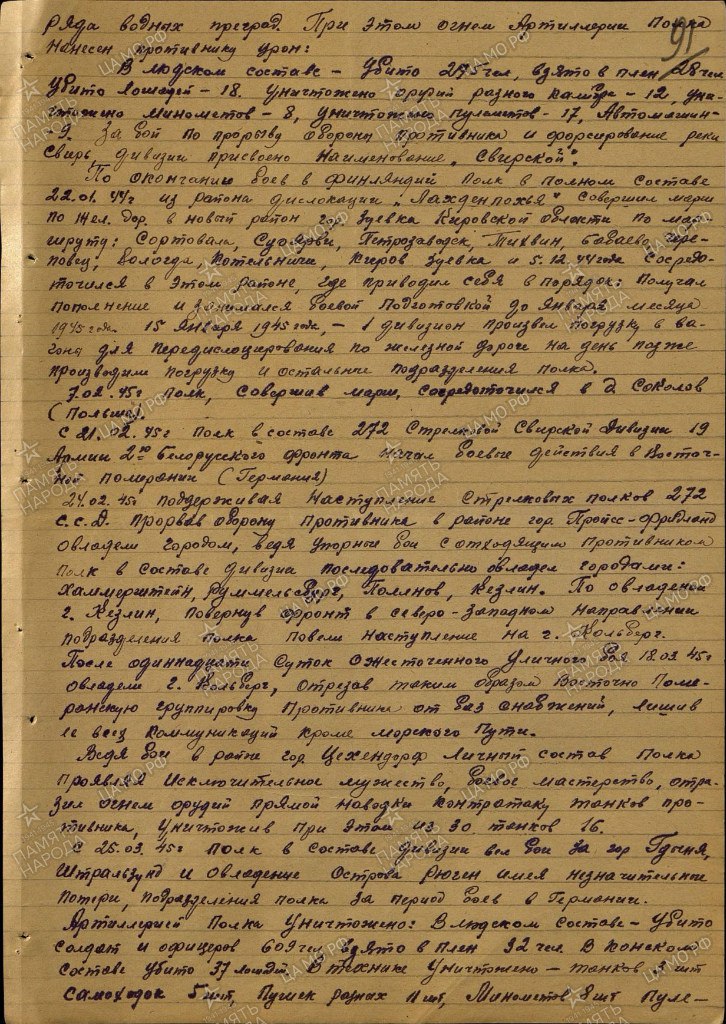 91
ряда водных преград. При этом огнем Артиллерии Полка
нанесен противнику урон:
В людском составе – убито 275 чел, взято в плен 28 чел
Убито лошадей – 18. Уничтожено орудий разного калибра – 12, уни-
чтожено минометов – 8, уничтожено пулеметов – 17, Автомашин –
9. За бой по прорыву обороны противника и форсирование реки
Свирь дивизии присвоено наименование „Свирской".
По окончании боев в Финляндии Полк в полном составе
22.01.44г из района дислокации „Лахденпохья" совершил марш
по жел. дор. в новый район гор. Зуевка Кировской области по мар-
шруту: Сортовала, Суоярви, Петрозаводск, Тихвин, Бабаево, Чере-
повец, Вологда, Котельничи, Киров Зуевка и 5.12.44 года сосредо-
точился в этом районе, где приводил себя в порядок: получал
пополнение и занимался боевой подготовкой до января месяца
1945 года. 15 января 1945 года, – 1 дивизион произвел погрузку в ва-
гоны для передислоцирования по железной дороге на день позже
производили погрузку и остальные подразделения полка.
7.02.45г полк, совершив марш, сосредоточился в д Соколов
(Польша)
С 21.02.45г полк в составе 272 Стрелковой Свирской Дивизии 19
Армии 2го Белорусского фронта начал боевые действия в Восточ-
ной померании (Германия)
24.02.45г поддерживая наступление Стрелковых полков 272
С.С.Д. прорвав оборону противника в районе гор. Пройсс-Фридланд
овладели городом, ведя упорные бои с отходящим противником
полк в составе дивизии последовательно овладел городами:
Хаммерштейн, Руммельсбург, Поллнов, Кезлин. По овладении
г. Кезлин, повернув фронт в северо-западном направлении
подразделения полка повели наступление на г. Кольберг.
После одиннадцати суток ожесточенного уличного боя 18.03.45г
овладели г. Кольберг, отрезав таким образом Восточно Поме-
ранскую группировку противника от баз снабжений, лишив
ее всех коммуникаций кроме морского пути.
Ведя бои в районе гор Цехендорф личный состав полка
проявляя исключительное мужество, боевое мастерство, отра-
зил огнем орудий прямой наводки контратаку танков про-
тивника, уничтожив при этом из 30 танков 16.
С 25.03.45г полк в составе дивизии вел бои за гор Гдыня,
Штральзунд и овладение острова Рюген имея незначительные
потери, подразделения полка за период боев в Германии.
Артиллерией Полка уничтожено: В людском составе – убито
солдат и офицеров 609 чел взято в плен 32 чел. В конском
составе убито 37 лошадей. В технике уничтожено – танков шт
самоходок 5 шт, Пушек разных 11 шт, Минометов 8 шт Пуле-
ПАМЯТЬ НАРОДА
ЦАМО.РФ